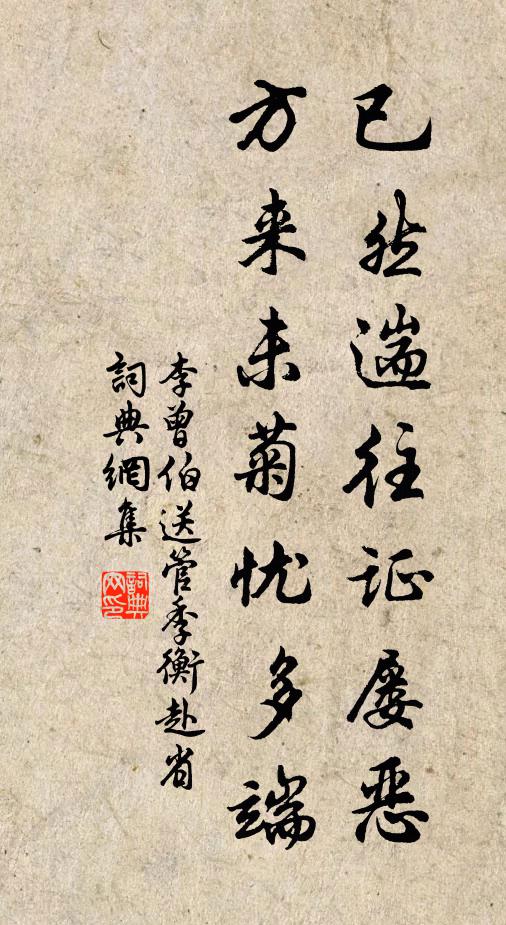 已然遄往证屡恶
方来未菊忧多端
李曾伯送管季衡赴省
詞典網集
詞典网印